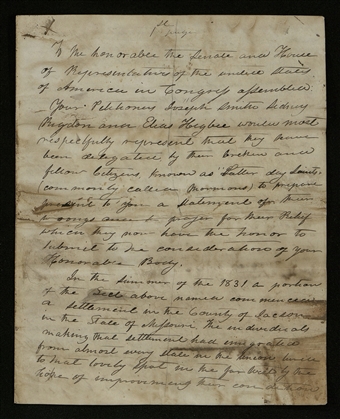 1st page
To the honorable the Senate and House
of Representatives of the united States
of America in Congress assembled
Your Petitioners Joseph Smith Sidney
Rigdon and Elias Higbee would most
respectfully represent that they have
been delegated by their brethren and
fellow Citizens known as Latter day Saints
(commonly called Mormons) to prepare
present to you a Statement of their
wrongs and a prayer for their Relief
which they now have the honor to
Submit to the consideration of your
Honorable Body.
In the summer of the 1831 a portion
of the Sect above named commenced
a settlement in the County of Jackson
in the State of Missouri. The individuals
making that settlement had emigrated
from almost every state in the Union
to that lovely Spot in the far West in the
hope of improving their condition